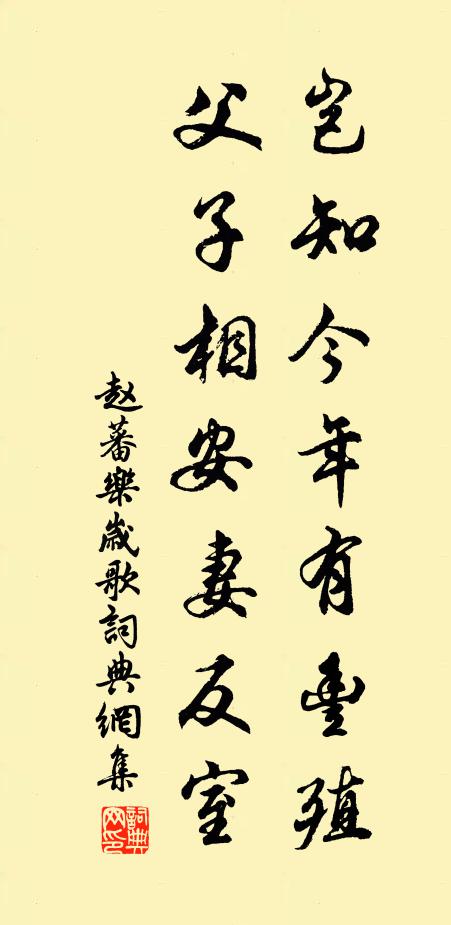 岂知今年有豊殖
父子相安妻反室
赵蕃樂歲歌詞典網集
詞典
网印